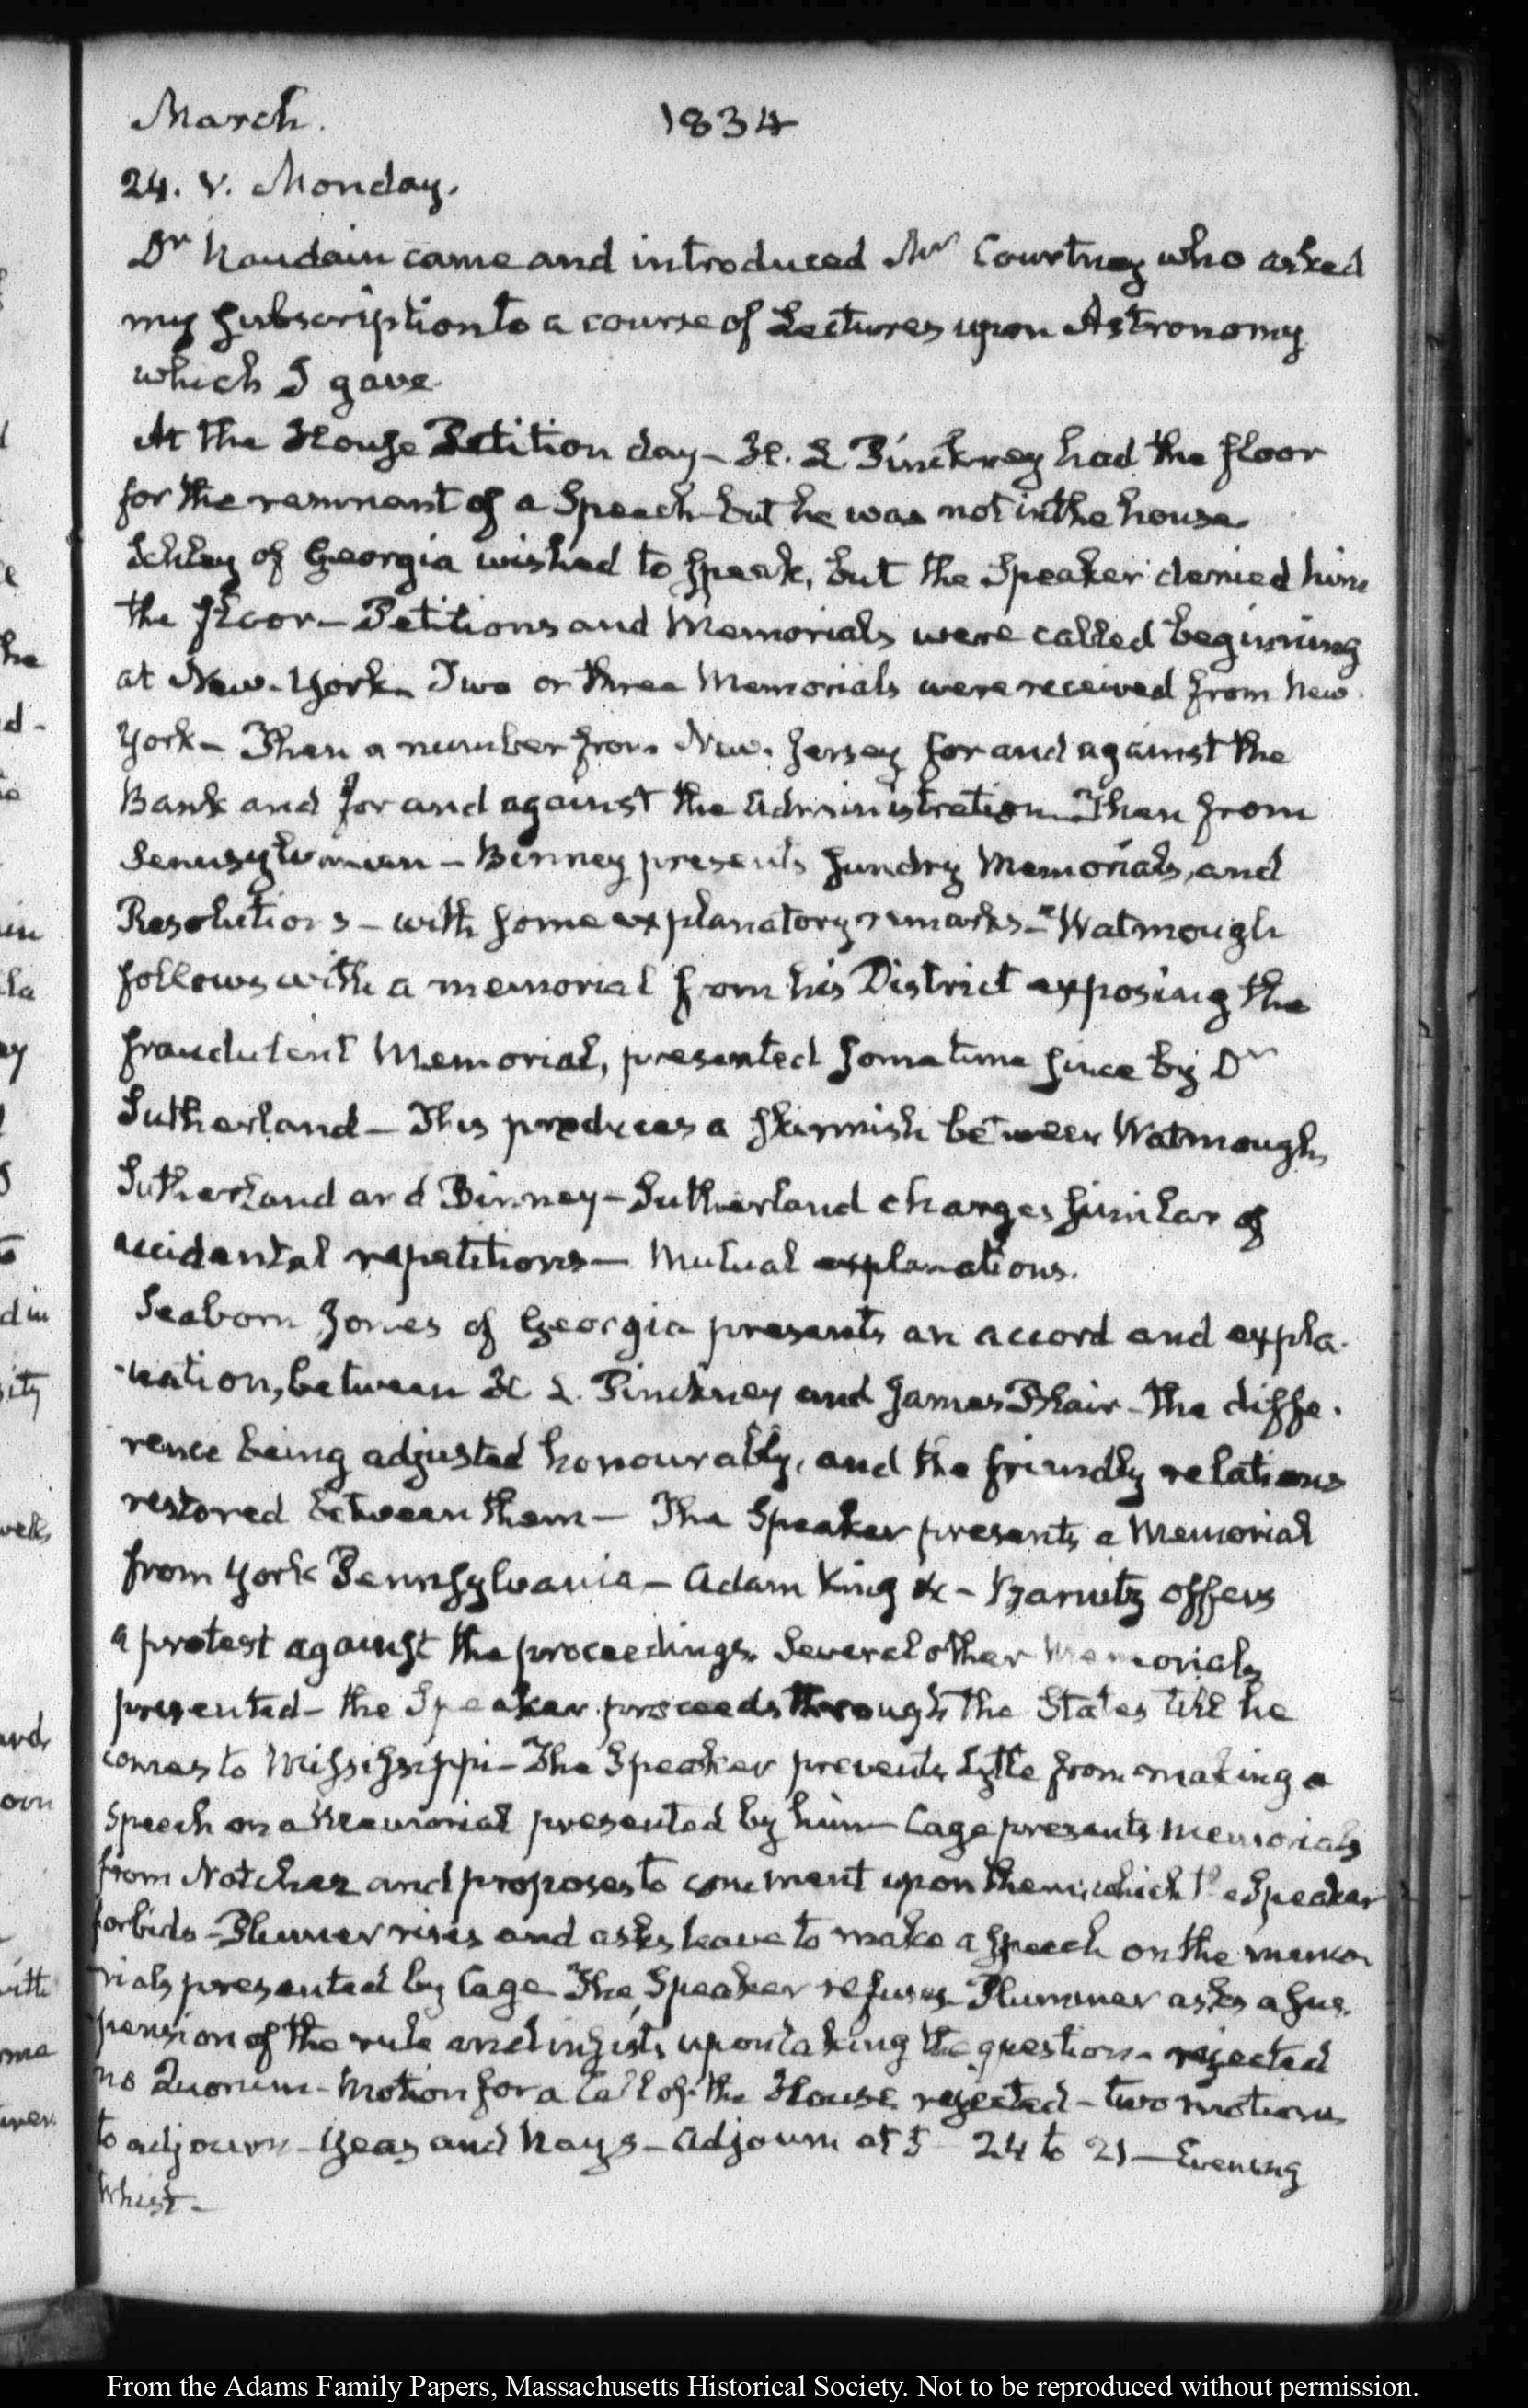 March. 1834
24. V. Monday.
Dr Naudain came and introduced Mr Courtney who asked
my subscription to a course of Lectures upon Astronomy
which I gave.
At the House Petition day – H. L Pinckney had the floor
for the remnant of a Speech but he was not in the house.
Schley of Georgia wished to speak, but the Speaker denied him
the floor – Petitions and Memorials were called beginning
at New-York – Two or three Memorials were received from New
York – Then a number from New-Jersey for and against the
Bank and for and against the Administration – Then from
– Binney presents sundry Memorials, and
Resolutions – with some explanatory remarks – Watmough
follows with a memorial from his District exposing the
fraudulent Memorial, presented some time since by Dr
Sutherland – This produces a skirmish between Watmough,
Sutherland and Binney – Sutherland charges similar of
accidental repetitions – Mutual explanations.
Seaborn Jones of Georgia presents an accord and expla-
-nation, between H L. Pinckney and James Blair – the diffe-
rence being adjusted honourably, and the friendly relations
restored between them – The Speaker presents a Memorial
from York Pennsylvania – Adam King &c – Barnitz offers
a protest against the proceedings. Several other Memorials
presented – the Speaker proceeds through the States till he
comes to Mississippi – The Speaker prevents Lytle from making a
Speech on a Memorial presented by him – Cage presents memorials
from Natchez and proposes to comment upon them, which the Speaker
forbids – Plummer rises and asks leave to make a speech on the memo-
rials presented by Cage The Speaker refuses – Plummer asks a sus-
pension of the rule and insists upon taking the question – rejected
no Quorum – Motion for a Call of the House rejected – two motions
to adjourn – Yeas and Nays – Adjourn at 5 24 to 21 – Evening
Whist –
From the Adams Family Papers, Massachusetts Historical Society. Not to be reproduced without permission.